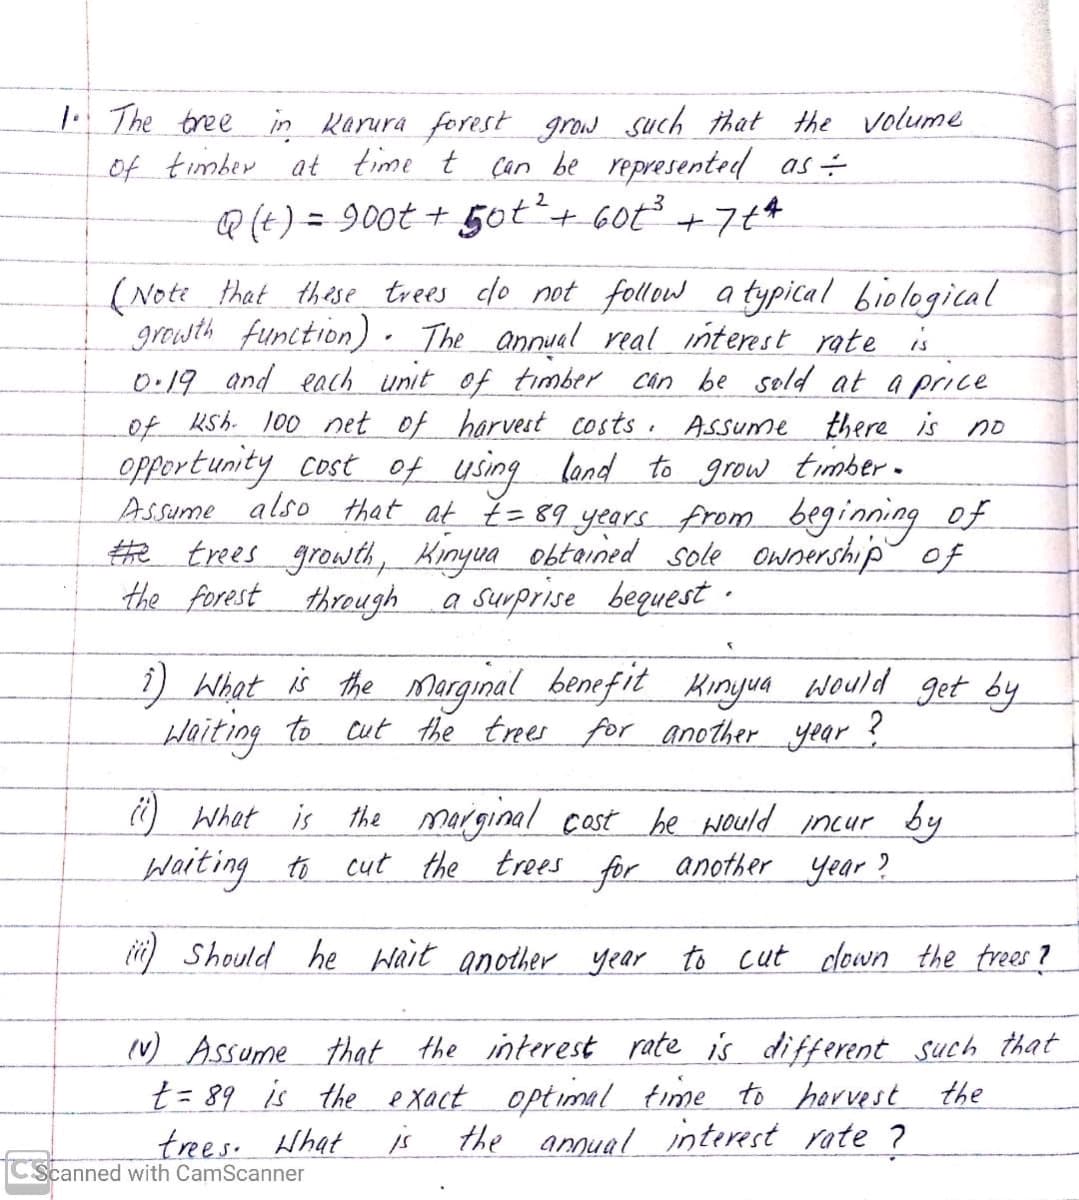 1. The tree in Karura forest grow such that the volume
of timber at time t can be represented as ÷
Q(t) = 900t + 50t² + 60t³ + 7t⁴
(Note that these trees do not follow a typical biological
growth function). The annual real interest rate is
0.19 and each unit of timber can be sold at a price
of Ksh. 100 net of harvest costs. Assume there is no
opportunity cost of using land to grow timber.
Assume also that at t = 89 years from beginning of
the trees growth, Kinyua obtained sole ownership of
the forest through a surprise bequest.
i) What is the marginal benefit Kinyua would get by
Waiting to cut the trees for another year?
ii) What is the marginal cost he would incur by
Waiting to cut the trees for another year?
iii) Should he wait another year to cut down the trees?
iv) Assume that the interest rate is different such that
t = 89 is the exact optimal time to harvest the
trees. What is the annual interest rate?
CS Scanned with CamScanner